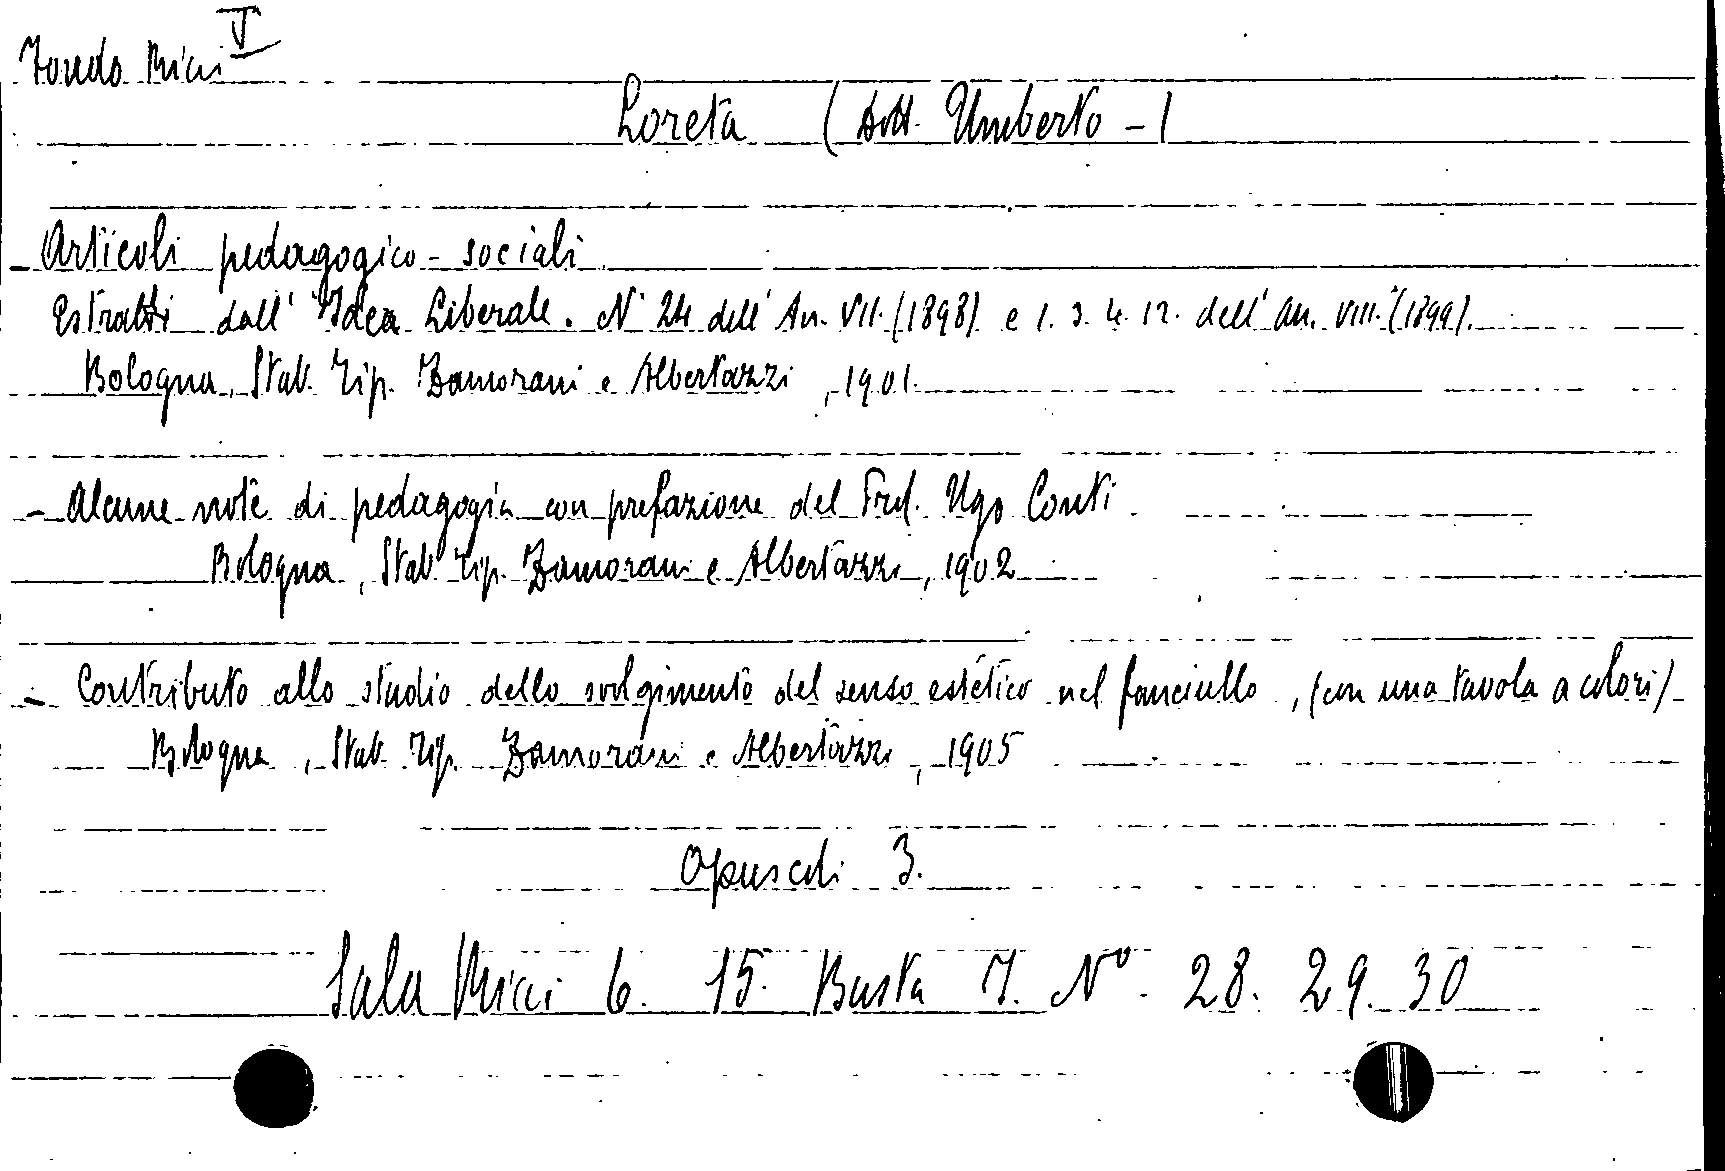 Fondo Ricci V
Loreta (Dott. Umberto -)
- Articoli pedagogico-sociali
Estratti dall' "Idea Liberale. N° 24 dell' An. VII. (1898) e 1. 3. 4. 12. dell' an. VIII." (1899).
Bologna, Stab. Tip. Zamorani e Albertazzi, 1901.
- Alcune note di pedagogia con prefazione del Prof. Ugo Conti
Bologna, Stab. Tip. Zamorani e Albertazzi, 1902
- Contributo allo studio dello svolgimento del senso estetico nel fanciullo, (con una tavola a colori)
Bologna, Stab. Tip. Zamorani e Albertazzi, 1905
Opuscoli 3.
Sala Ricci 6. 15. Busta I. N° 28. 29. 30